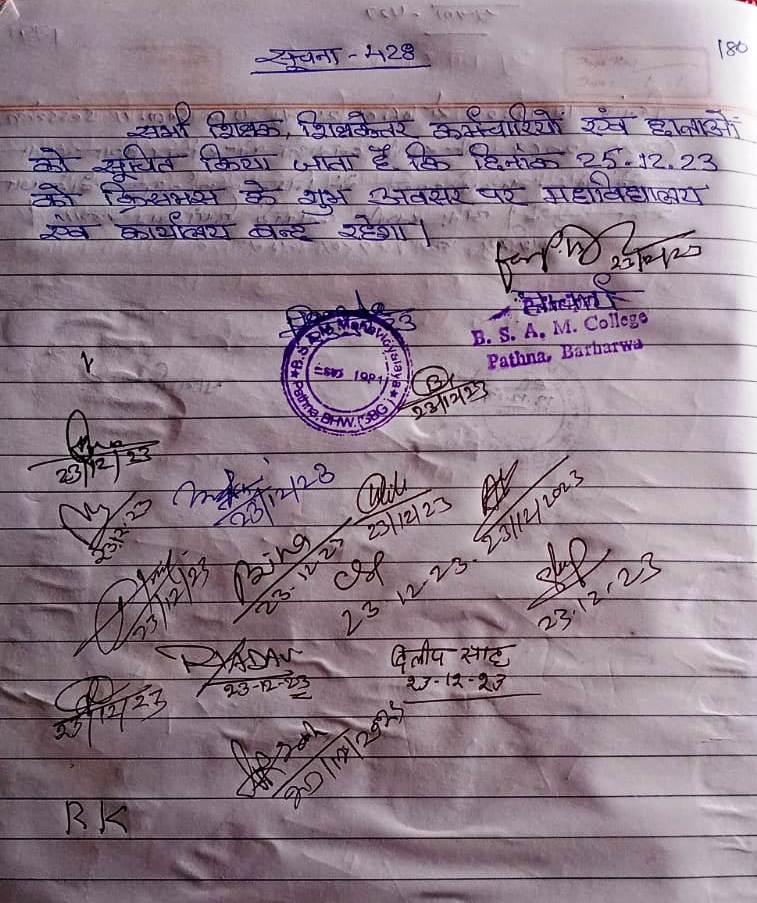 180
सूचना - 428
सभी शिक्षक, शिक्षकेत्तर कर्मचारियों एवं छात्राओं
को सूचित किया जाता है कि दिनांक 25.12.23
को क्रिसमस के शुभ अवसर पर महाविद्यालय
एवं कार्यालय बन्द रहेगा।
23/12/23
B. S. A. M. College
Pathna, Barharwa
Mahavidyalaya
Pathna, BHW. (SBG)
23/12/23
23/12/23
23/12/23
23/12/23
23/12/2023
23.12.23
23/12/23
23-12-23
23.12.23.
23.12.23
RYADAV
23-12-23
दिलीप साह
23-12-23
23/12/23
R K